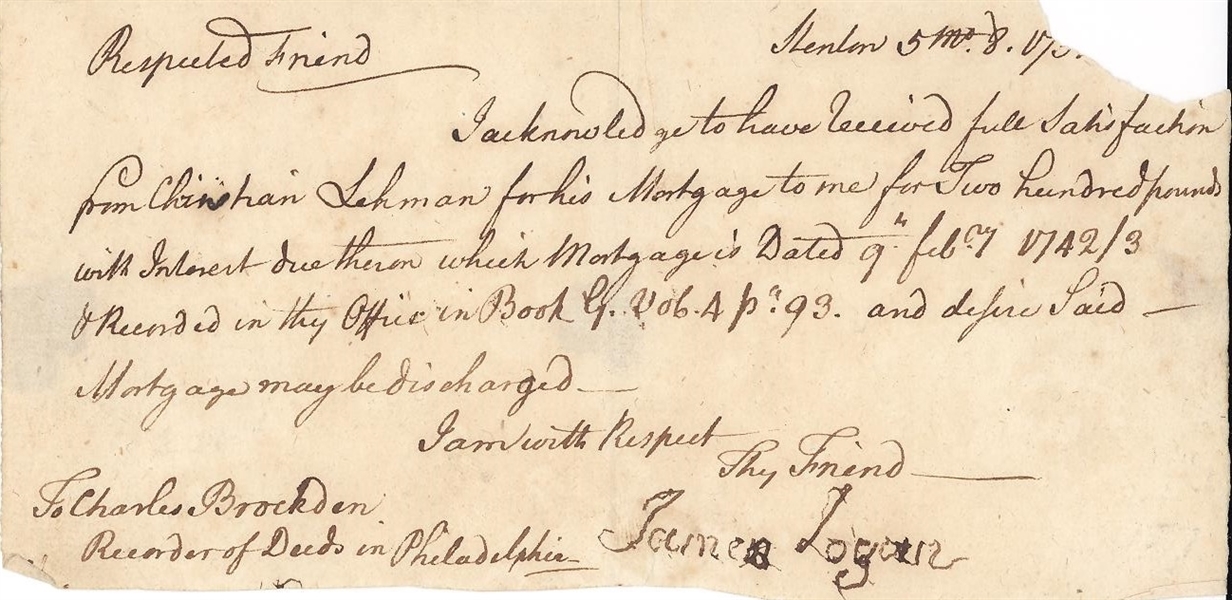 Respected Friend Stenton 5 mo. 8. 175
I acknowledge to have received full Satisfaction
from Christian Lehman for his Mortgage to me for Two hundred pounds
with Interest due theron which Mortgage is Dated 9th febry 1742/3
& Recorded in thy Office in Book G. Vol. 4 pa. 93. and desire Said
Mortgage may be discharged
I am with Respect
Thy Friend
To Charles Brockden
Recorder of Deeds in Philadelphia James Logan